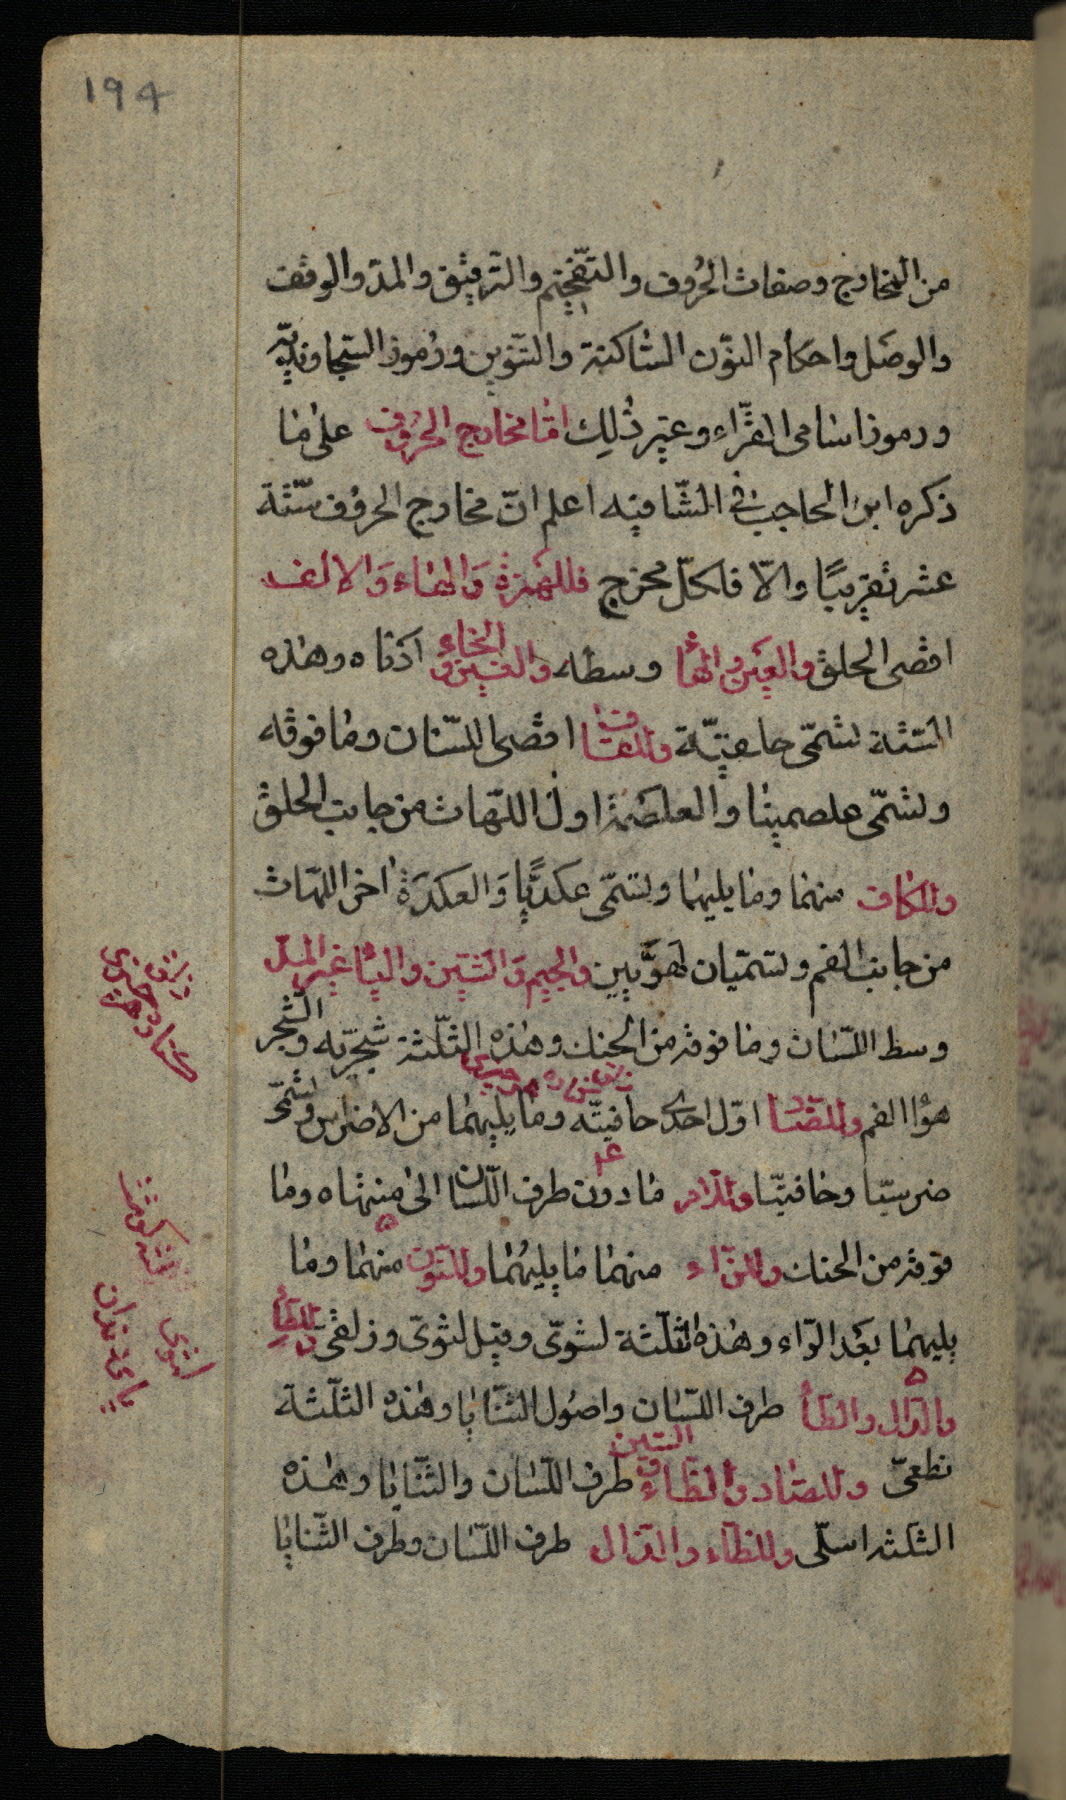 ۱۹۴
من المخارج وصفات الحُروف والتّفخيم والتّرقيق والمدّ والوقف
والوصَل واحكام النوّن السّاكنة والتّنوين ورُموز السّجاونديّه
ورموز اسامى القرّاء وغير ذٰلِك امّا مخارج الحُروُف علىٰ مٰا
ذكره ابن الحاجب فى الشّافيه اعلم انّ مخارج الحروُف ستّة
عشر تقريبًا والّا فلكلّ مخرج فللهَمزةِ وَالهٰاء وَالالف
اقصى الحلق والعَين والحٰا وسطه والغين والخاءِ ادناه وهٰذه
الستّة تسّمّى حلقيّة وللقٰاف اقصى اللسّان ومٰا فوقه
ولسّمّى غلصميٰنا والغلصمة اول اللّهات من جانب الحلق
وللكاف منهٰما ومٰا يليهٰما ولسّمّى عكديًا وَالعكدَة اخر اللهّات
من جانب الفم ولسّمّيان لهويّين والجيم وَالشّين واليٰا غير المدّ
وسط اللسّان ومٰا فوقه من الحنك وهٰذه الثّلثة شجريّه والشّجر
هوُ الفم وللضّاد اوّل احدى حافيتّه ومٰا يليهمٰا من الاضراس ولسّمّى
ضرسيّا وحٰافيّا وللّام مٰا دون طرف اللّسان الىٰ منتهٰاه ومٰا
فوقه من الحنك وللرّاء منهمٰا مٰا يليهُمٰا وللنّون منهٰما ومٰا
يليهمٰا بعَد الرّاء وهٰذه الثّلثة لثوىّ وقيل لثوىّ وزلقىّ وللطٰاءِ
والدّال والتٰاء طرف اللسّان واصُول الثّنٰايٰا وهٰذه الثّلثة
نطعىّ وللصّاد والزّاء والسّين طرف اللّسان والثّنايٰا وهٰذه
الثلثه اسلّى وللظٰاء والذّال طرف اللسّان وطرف الثّنايٰا